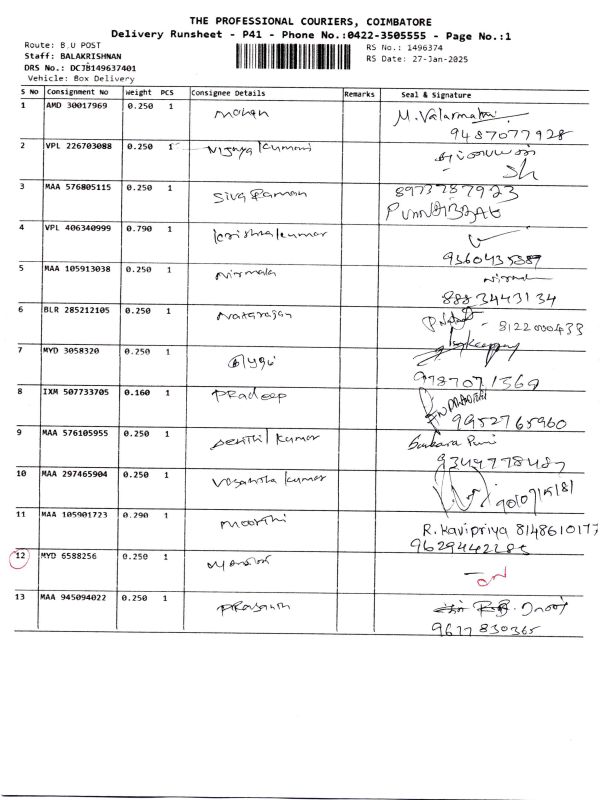 THE PROFESSIONAL COURIERS, COIMBATORE
Delivery Runsheet - P41 - Phone No.:0422-3505555 - Page No.:1
Route: B.U POST
RS No.: 1496374
Staff: BALAKRISHNAN
RS Date: 27-Jan-2025
DRS No.: DCJB149637401
Vehicle: Box Delivery
S No Consignment No Weight PCS Consignee Details Remarks Seal & Signature
1 AMD 30017969 0.250 1 Mohan M. Valarmathi
9487077928
2 VPL 226703088 0.250 1 Vijaya kumari
3 MAA 576805115 0.250 1 Siva Raman 8973787923
4 VPL 406340999 0.790 1 krishna kumar
9360435889
5 MAA 105913038 0.250 1 Nirmala
8883443134
6 BLR 285212105 0.250 1 Natarajan 8122000433
7 MYD 3058320 0.250 1
8 IXM 507733705 0.160 1 Pradeep
9952765960
9 MAA 576105955 0.250 1 Senthil kumar Sankara
9349778487
10 MAA 297465904 0.250 1 Vasantha kumar
11 MAA 105901723 0.290 1 Moorthi R. Kavipriya 8148610177
12 MYD 6588256 0.250 1
13 MAA 945094022 0.250 1 Prasanth
9677830365